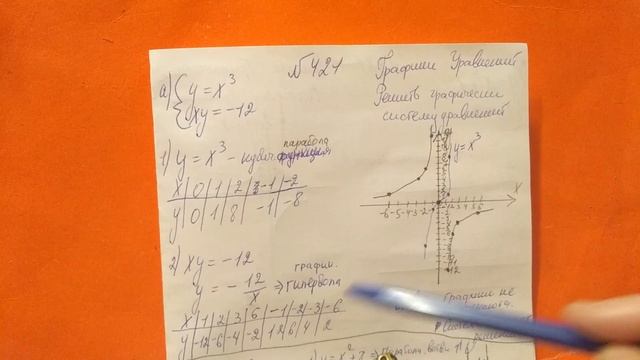 №421
Графики Уравнений
Решить графически
систему уравнений
а) { y = x³
xy = -12
1) y = x³ - кубич. парабола
x | 0 | 1 | 2 | -1 | -2
y | 0 | 1 | 8 | -1 | -8
y = x³
x
-6 -5 -4 -3 -2
2) xy = -12
y = - 12/x => график гипербола
x | 1 | 2 | 3 | 6 | -1 | -2 | -3 | -6
y | -12 | -6 | -4 | -2 | 12 | 6 | 4 | 2
графики не
y = x² + 7 => Парабола, ветви